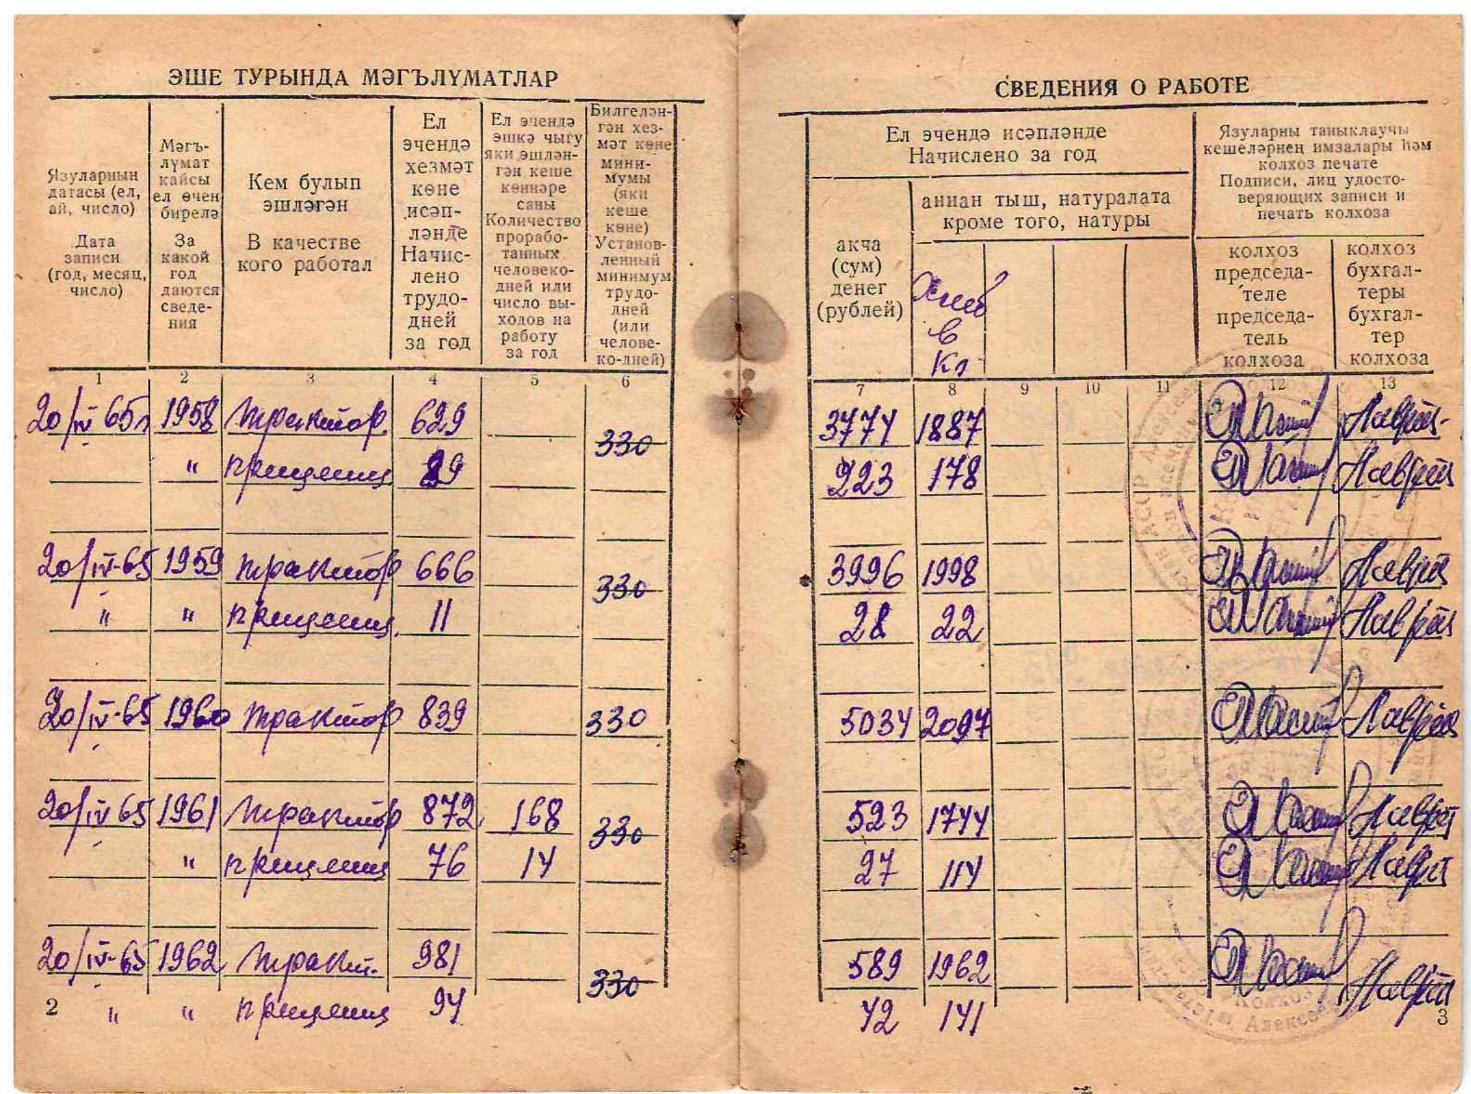 ЭШЕ ТУРЫНДА МӘГЪЛҮМАТЛАР
Язуларның датасы (ел, ай, число)
Дата записи (год, месяц, число)
Мәгъ-
лүмат
кайсы
ел өчен
бирелә
За
какой
год
даются
сведе-
ния
Кем булып
эшләгән
В качестве
кого работал
Ел
эчендә
хезмәт
көне
исәп-
ләнде
Начис-
лено
трудо-
дней
за год
Ел эчендә
эшкә чыгу
яки эшлән-
гән кеше
көннәре
саны
Количество
прорабо-
танных
человеко-
дней или
число вы-
ходов на
работу
за год
Билгелән-
гән хез-
мәт көне
мини-
мумы
(яки
кеше
көне)
Установ-
ленный
минимум
трудо-
дней
(или
челове-
ко-дней)
1 2 3 4 5 6
20/IV 65г 1958 трактор. 629 330
" прицепщ 89
20/IV-65 1959 трактор 666 330
" " прицепщ. 11
20/IV-65 1960 трактор 839 330
20/IV 65 1961 трактор 872 168 330
" прицепщ 76 14
20/IV-65 1962 тракт. 981 330
" " прицепщ 94
2
СВЕДЕНИЯ О РАБОТЕ
Ел эчендә исәпләнде
Начислено за год
акча
(сум)
денег
(рублей)
аннан тыш, натуралата
кроме того, натуры
Хлеб
в
кг
Язуларны таныклаучы
кешеләрнең имзалары һәм
колхоз печате
Подписи, лиц удосто-
веряющих записи и
печать колхоза
колхоз
председа-
теле
председа-
тель
колхоза
колхоз
бухгал-
теры
бухгал-
тер
колхоза
7 8 9 10 11 12 13
3774 1887
223 178
3996 1998
28 22
5034 2097
523 1744
27 114
589 1962
42 141
3